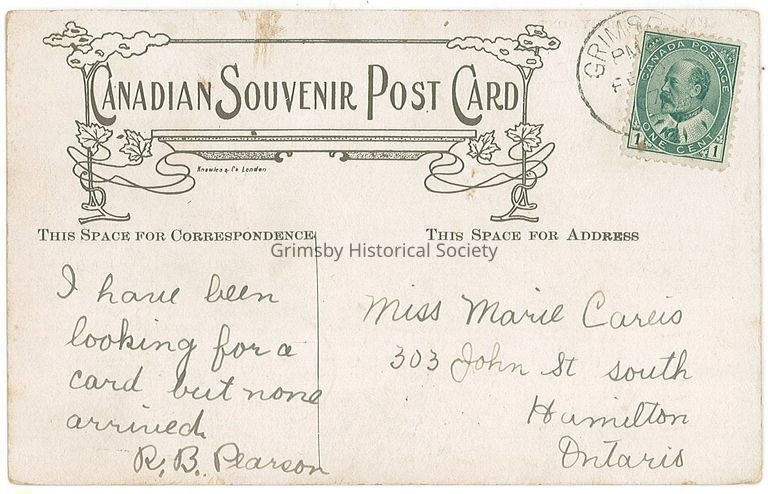 CANADIAN SOUVENIR POST CARD
Knowles & Co London
GRIMSB
PM
CANADA POSTAGE
1 ONE CENT 1
THIS SPACE FOR CORRESPONDENCE
THIS SPACE FOR ADDRESS
Grimsby Historical Society
I have been
looking for a
card but none
arrived
R. B. Pearson
Miss Marie Careis
303 John St south
Hamilton
Ontario